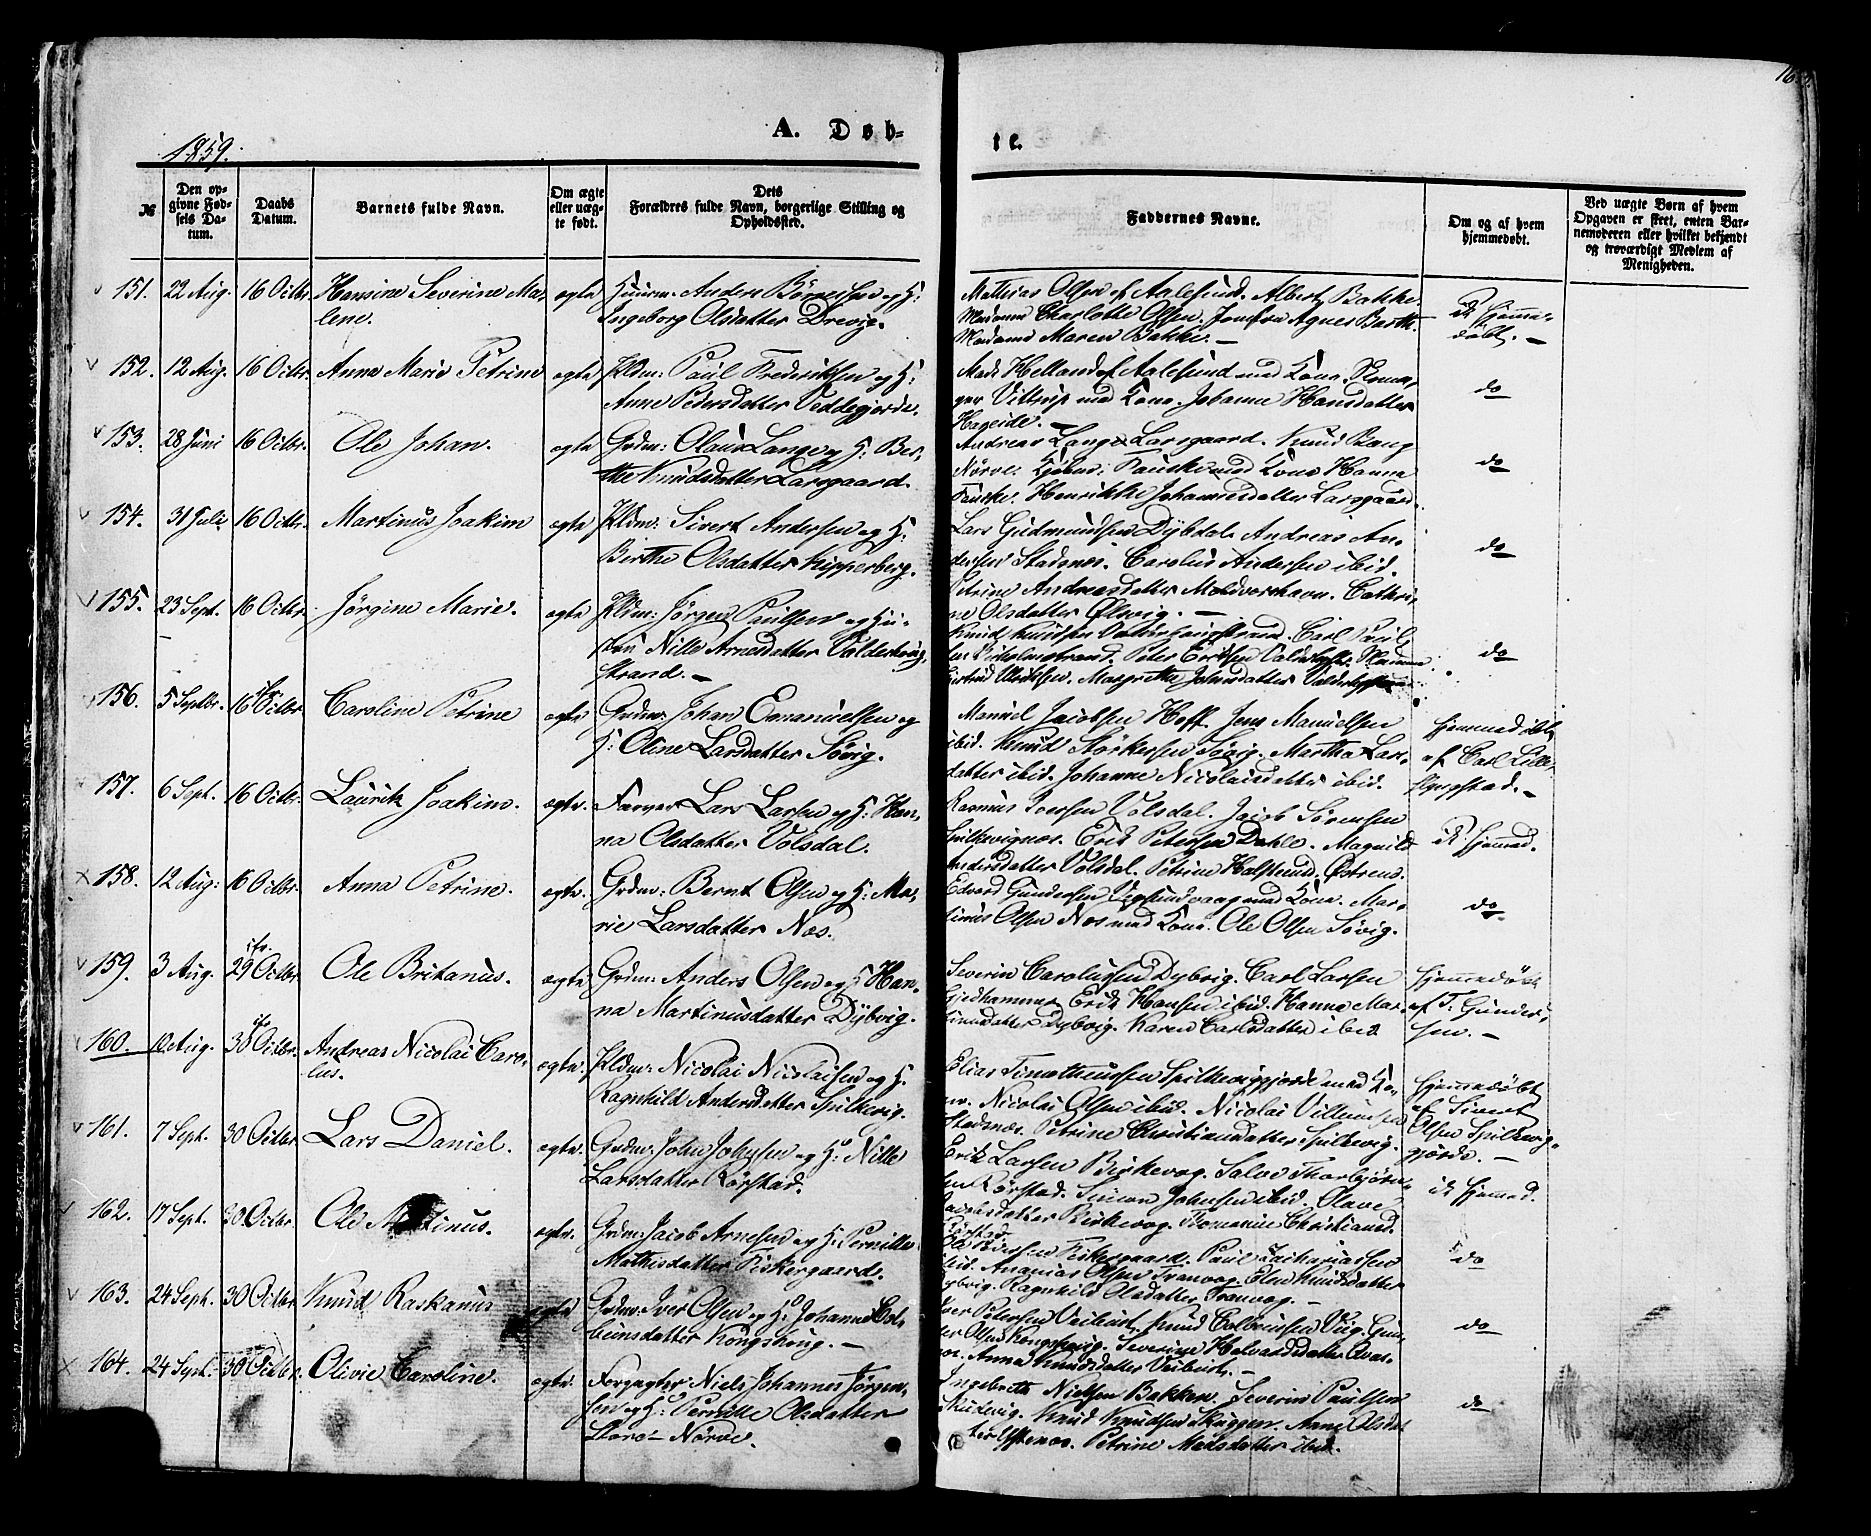 163.
1859.
A. Døb-
te.
№
Den op-
givne Fød-
sels Da-
tum.
Daabs
Datum.
Barnets fulde Navn.
Om ægte
eller uæg-
te født.
Dets
Forældres fulde Navn, borgerlige Stilling og
Opholdssted.
Faddernes Navne.
Om og af hvem
hjemmedøbt.
Ved uægte Børn af hvem
Opgaven er skeet, enten Bar-
nemoderen eller hvilket bekjendt
og troværdigt Medlem af
Menigheden.
151. 22 Aug. 16 Octbr. Hansine Severine Ma-
lene.
ægte Huusm. Anders
Ingeborg Olsdatter Drevig.
Mathias Olsen af Aalesund. Albert Bakke.
Madame Charlotte Olsen. Jomfru Agnes Barth.
Madame Maren Bakke. —
Ik hjemme-
døbt. —
152. 12 Aug. 16 Octbr. Anne Marie Petrine
ægte Pldm: Paul Frederiksen og H:
Anne Pedersdatter Veddegjerde.
Mads Helland af Aalesund med Kone.
Vittrup med Kone. Johanne Hansdatter
Hageide. —
do
153. 28 Juni 16 Octbr. Ole Johan.
ægte Grdm: Olaus Lange og H: Ber-
the Knudsdatter Larsgaard.
Andreas Lange Larsgaard. Knud Bang
Nørve. Kjøbm: Fauske med Kone Hanna
Fauske. Henrikke Johannesdatter Larsgaard.
do
154. 31 Juli 16 Octbr. Martinus Joakim
ægte Pldm: Sivert Andersen og H:
Berthe Olsdatter Kipperberg.
Lars Gudmundsen Dybdal. Andreas An-
dersen Stadsnæs. Carolus Andersen ibid.
Petrine Andreasdatter Moldværhavn. Cathri-
ne Olsdatter Ølvig. —
do
155. 23 Sept. 16 Octbr. Jørgine Marie.
ægte Pldm: Jørgen Paulsen og Hu-
stru Nille Arnesdatter Valderhoug-
strand. —
Knud Knudsen Valderhaugstrand. Carl Paul-
sen Kirkholmstrand. Peter Eriksen
Gertrud Ulriksen. Margrethe Johnsdatter
do
156. 5 Septbr. 16 Octbr. Caroline Petrine
ægte Grdm: Johan Emanuelsen og
H: Oline Larsdatter Søvig.
Manuel Jacobsen Hoff. Jens Manuelsen
ibid. Knud Størkersen Søvig. Martha Lars-
datter ibid. Johanne Nicolaisdatter ibid.
hjemmedøbt
af Carl Lille
Slyngstad. —
157. 6 Sept. 16 Octbr. Laurits Joakim.
ægte. Farver Lars Larsen og H: Han-
na Olsdatter Volsdal.
Rasmus Iversen Volsdal. Jacob Sørensen
Spilkevignæs. Erik Petersen Dahle. Magnild
Andersdatter Volsdal. Petrine Halseund. Østrem.
ik hjemmed.
158. 12 Aug: 16 Octbr. Anna Petrine.
ægte. Grdm: Bernt Olsen og H: Ma-
rie Larsdatter Næs.
Edvard Gundersen Vegsundvaag med Kone. Mar-
tinus Olsen Næs med Kone. Ole Olsen Søvig.
do
159. 3 Aug. ifv. 29 Octbr. Ole Britanus.
ægte Grdm: Anders Olsen og H Han-
na Martinusdatter Dybvig.
Severin Carolussen Dybvig. Carl Larsen
Gjedhammer. Erik Hansen ibid. Hanna Mar-
tinusdatter Dybvig. Karen Carlsdatter ibid
hjemmedøbt
af T. Gunder-
sen. —
160. 12 Aug. ifv. 30 Octbr. Andreas Nicolai Caro-
lus.
ægte. Pldm: Nicolai Nicolaisen og H.
Ragnhild Andersdatter Spilkevig.
Elias Timotheussen Spilkeviggjerde med Ko-
ne. Nicolai Olsen ibid. Nicolai Villumsen
Stadsnæs. Petrine Christiansdatter Spilkevig.
hjemmedøbt
af Sivert
Olsen Spilkevig-
gjerde. —
161. 7 Sept. 30 Octbr. Lars Daniel.
ægte. Grdm: John Johnsen og H: Nille
Larsdatter Rørstad.
Erik Larsen Birkevog. Salve Thorbjørn-
sen Rørstad. Simon Johnsen ibid. Olave
Larsdatter Birkevog. Thomanine Christiansd.
Rørstad.
ik hjemmed.
162. 17 Sept. 30 Octbr. Ole Martinus.
ægte. Grdm: Jacob Arnesen og H: Pernille
Mathisdatter Fiskergaard.
Ole Iversen Fiskergaard. Paul Zachariassen
ibid. Ananias Olsen Tranvog. Elen Knudsdatter
Dybvig. Ragnhild Olsdatter Tranvog. —
do
163. 24 Sept. 30 Octbr. Knud Raskanus
ægte Grdm: Iver Olsen og H: Johanne Col-
beinsdatter Kongshoug. —
Iver Petersen Veibust. Knud Colbeinsen Vig. Gun-
der Olsen Kongshoug. Severine Halvardsdatter
Anna Knudsdatter Veibust. —
do
164. 24 Sept. 30 Octbr. Olivie Caroline.
ægte. Forpagter Niels Johannes Jørgen-
sen og H: Pernille Olsdatter
Store-Nørve.
Ingebreth Nielsen Bakken. Severin Paulsen
Knud Knudsen Anne Olsdat-
ter Ystenæs. Petrine Madsdatter ibid.
do